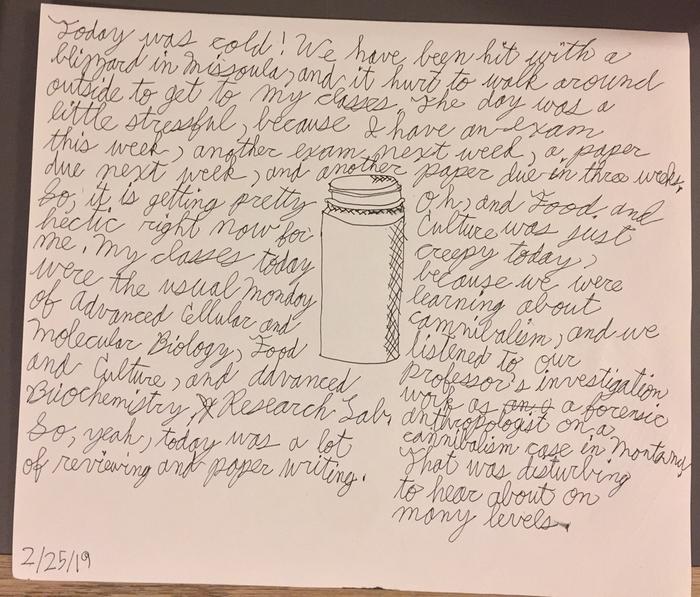 Today was cold! We have been hit with a
blizzard in Missoula, and it hurt to walk around
outside to get to my classes. The day was a
little stressful, because I have an exam
this week, another exam next week, a paper
due next week, and another paper due in three weeks.
So, it is getting pretty
hectic right now for
me. My classes today
were the usual Monday
of Advanced Cellular and
Molecular Biology, Food
and Culture, and Advanced
Biochemistry Research Lab.
So, yeah, today was a lot
of reviewing and paper writing.
Oh, and Food and
Culture was just
creepy today,
because we were
learning about
cannibalism, and we
listened to our
professor's investigation
work as a forensic
anthropologist on a
cannibalism case in Montana.
That was disturbing
to hear about on
many levels.
2/25/19